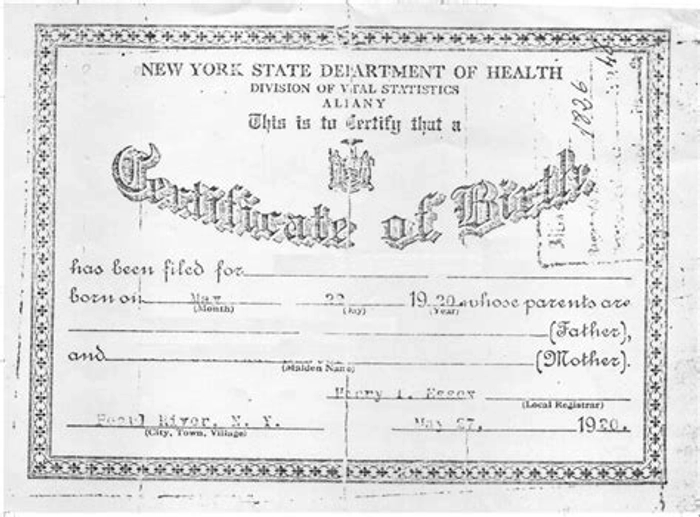 NEW YORK STATE DEPARTMENT OF HEALTH
DIVISION OF VITAL STATISTICS
ALBANY
This is to Certify that a
Certificate of Birth
has been filed for
born on May 22 1920 whose parents are
(Month) (Day) (Year)
(Father),
and (Mother).
(Maiden Name)
Harry
(Local Registrar)
Pearl River, N. Y. May 27, 1920.
(City, Town, Village)